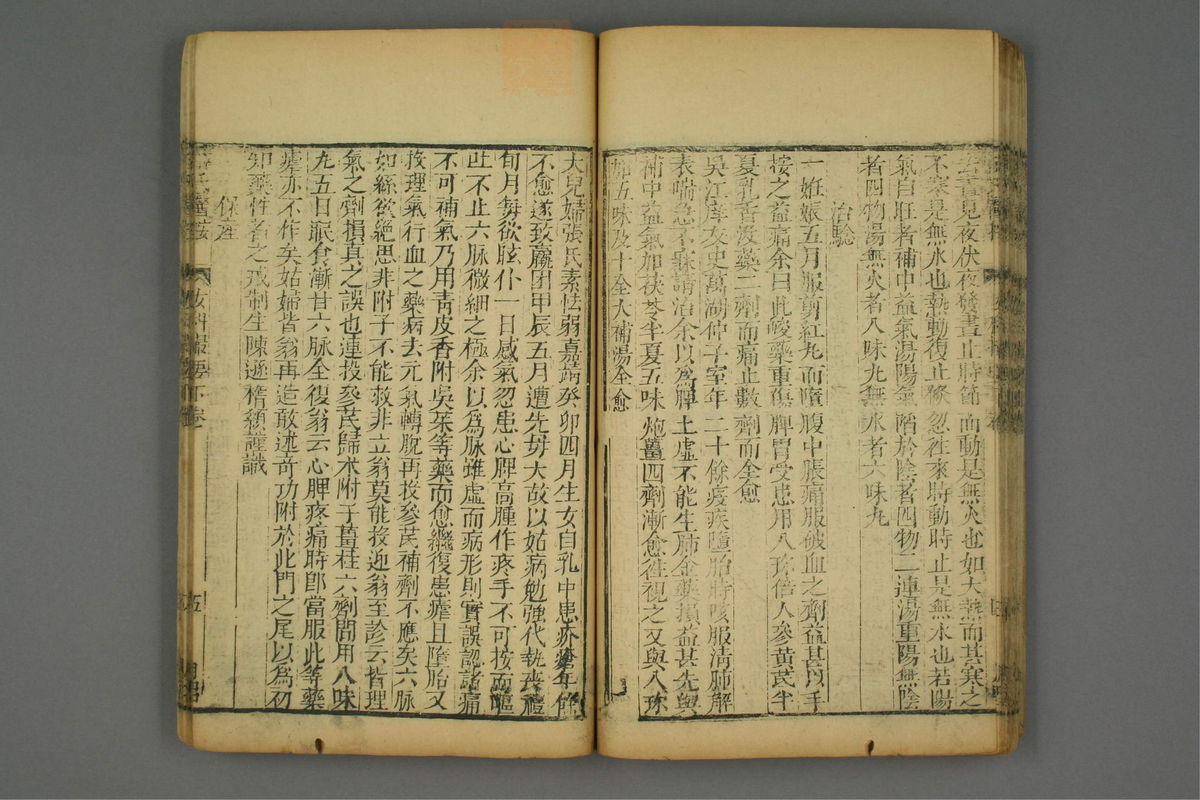 去晝見夜伏夜發晝止時節而動是無火也如大熱而甚寒之
不寒是無水也熱動復止倏忽往來時動時止是無水也若陽
氣自旺者補中益氣湯陽氣陷於陰者四物二連湯重陽無陰
者四物湯無火者八味丸無水者六味丸
治驗
一姙娠五月服剪紅丸而墮腹中脹痛服破血之劑益甚以手
按之益痛余曰此峻藥重傷脾胃受患用八珍倍人參黃芪半
夏乳香沒藥二劑而痛止數劑而全愈
吳江庠友史萬湖仲子室年二十餘疫疾墮胎時咳服清肺解
表喘急不寐請治余以為脾土虛不能生肺金藥損益甚先與
補中益氣加茯苓半夏五味炮薑四劑漸愈徃視之又與八珍
加五味及十全大補湯全愈
大兒婦張氏素怯弱嘉靖癸卯四月生女自乳中患疥瘡年餘
不愈遂致羸困甲辰五月遭先母大故以姑病勉強代執喪禮
旬月每欲眩仆一日感氣忽患心脾高腫作疼手不可按而嘔
吐不止六脉微細之極余以為脉雖虛而病形則實誤認諸痛
不可補氣乃用靑皮香附吳茱等藥而愈繼復患瘧且墮胎又
投理氣行血之藥病去元氣轉脫再投參芪補劑不應矣六脉
如絲欲絕思非附子不能救非立翁莫能投迎翁至診云皆理
氣之劑損真之誤也連投參芪歸朮附子薑桂六劑間用八味
丸五日眠食漸甘六脉全復翁云心脾疼痛時卽當服此等藥
瘧亦不作矣姑婦皆翁再造敢述奇功附於此門之尾以為初
知藥性者之戒制生陳遜稽顙謹識
保產
薛氏醫按
女科撮要下卷
五